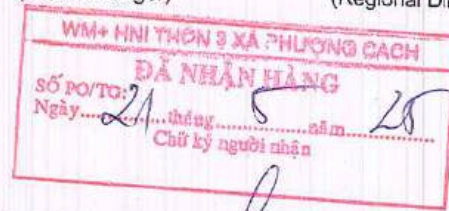 (Regional Di
WM+ HNI THÔN 3 XÃ PHƯỢNG CÁCH
ĐÃ NHẬN HÀNG
SỐ PO/TO:
Ngày 21 tháng 5 năm 25
Chữ ký người nhận